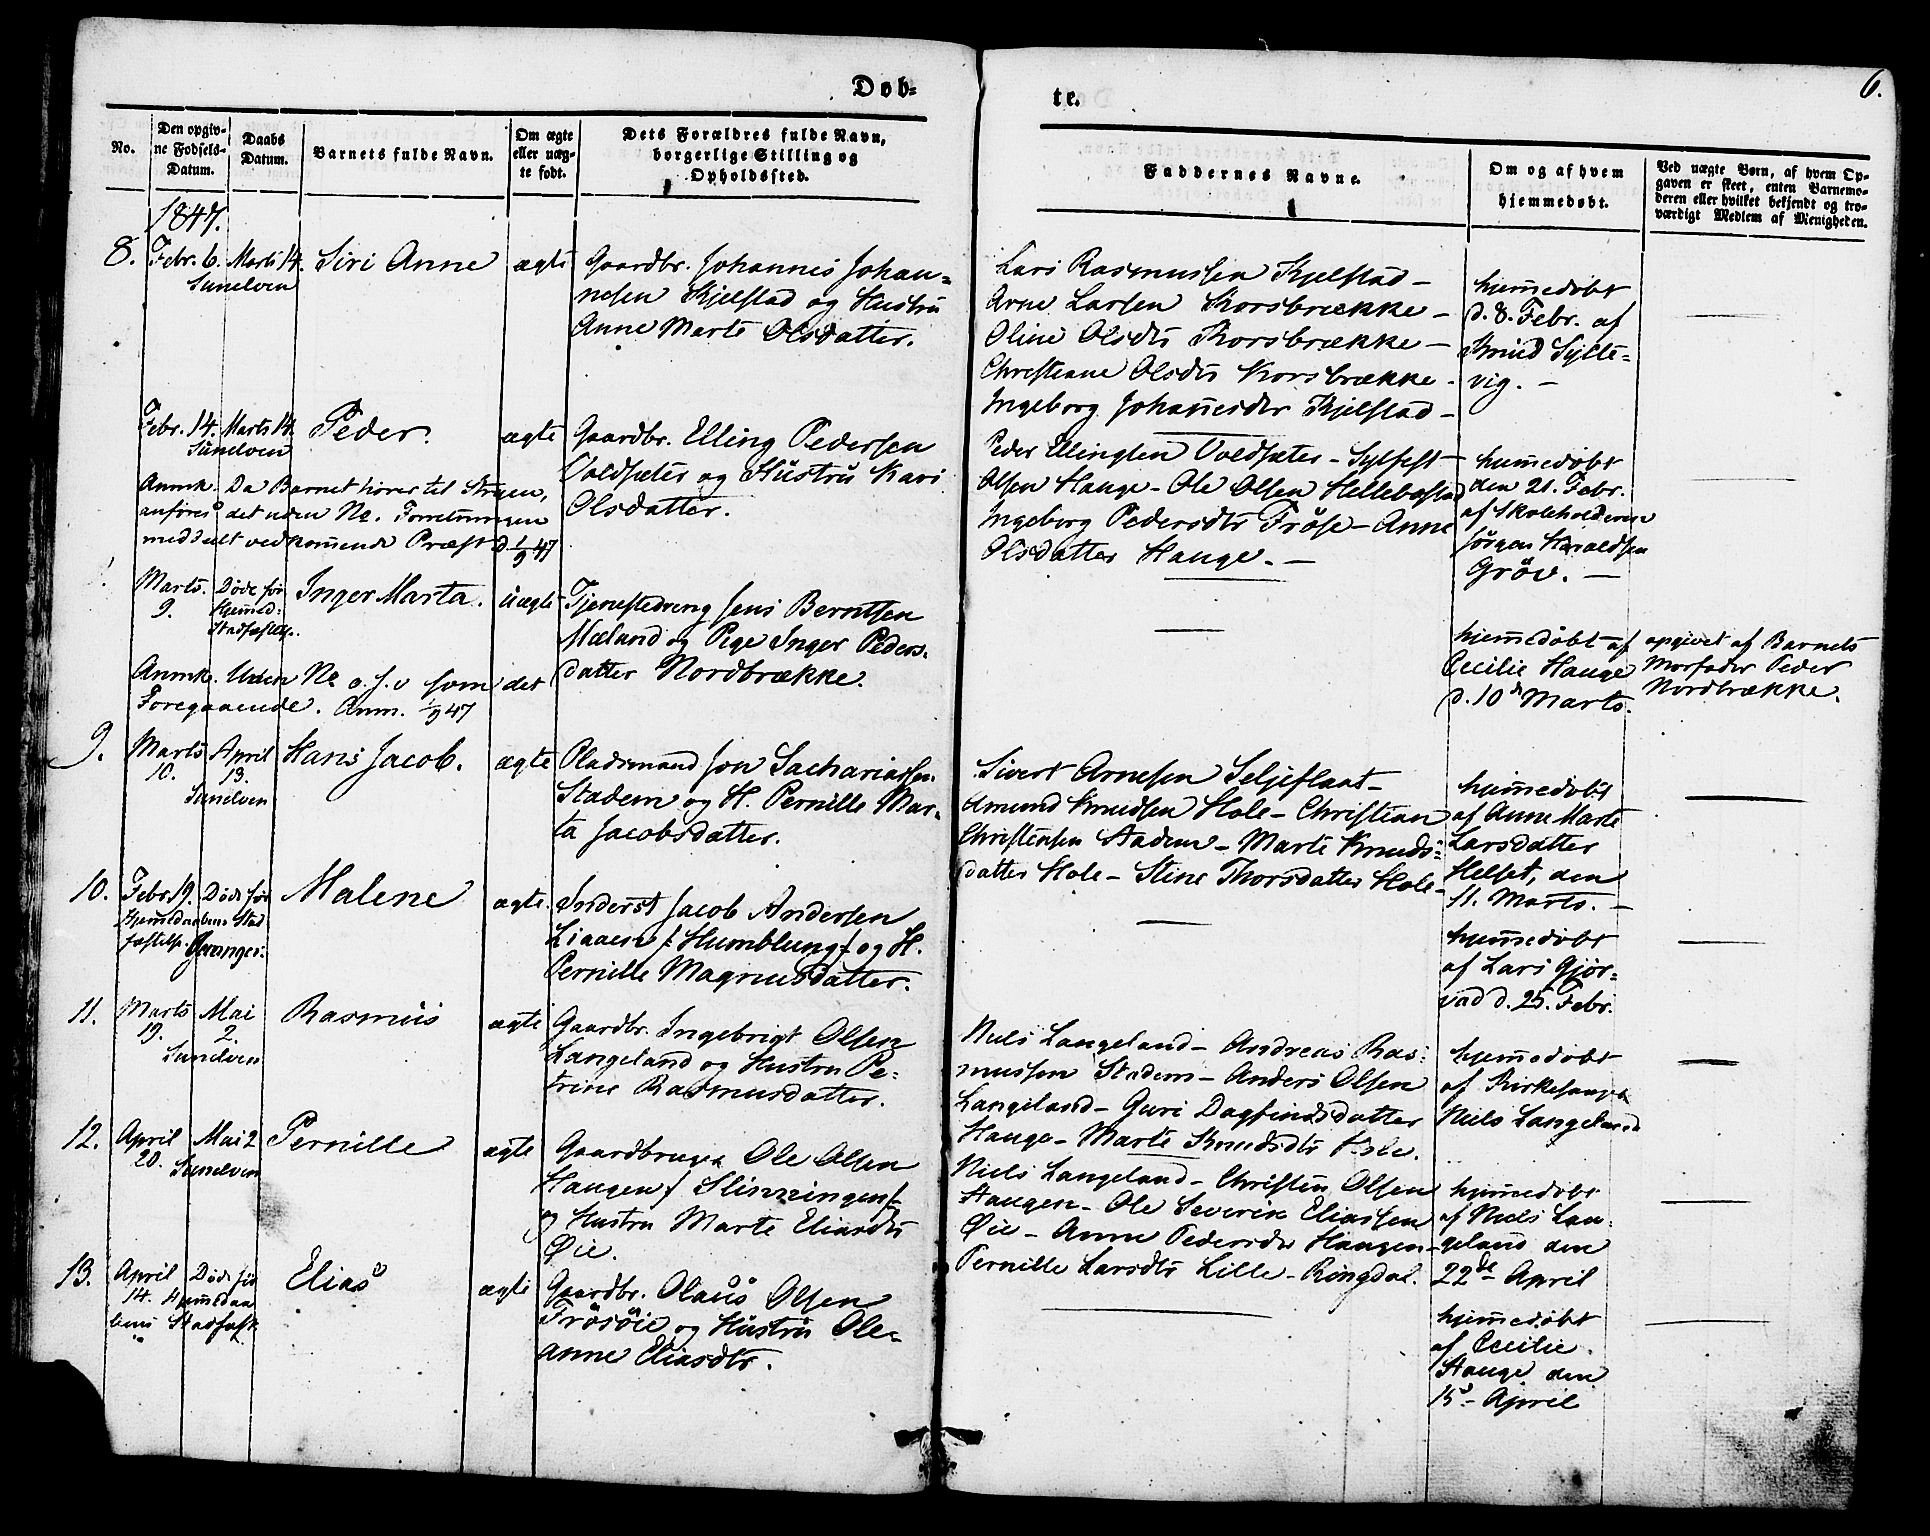 Døb-
te.
6.
No.
Den opgiv-
ne Fødsels-
Datum.
Daabs
Datum.
Barnets fulde Navn.
Om ægte
eller uæg-
te født.
Dets Forældres fulde Navn,
borgerlige Stilling og
Opholdssted.
Faddernes Navne.
Om og af hvem
hjemmedøbt.
Ved uægte Børn, af hvem Op-
gaven er skeet, enten Barnemo-
deren eller hvilket bekjendt og tro-
værdigt Medlem af Menigheden.
1847.
8.
Febr. 6.
Marts 14.
Sunelven
Siri Anne
ægte
Gaardbr. Johannes Johan-
nesen Kjelstad og Hustru
Anne Marte Olsdatter.
Lars Rasmussen Kjelstad -
Arne Larsen Korsbrække -
Oline Olsdtr Korsbrække -
Christiane Olsdtr Korsbrække -
Ingeborg Johannesdtr Kjelstad -
hjemmedøbt
d. 8. Febr. af
Knud Sylte-
vig. -
Febr. 14.
Marts 14.
Sunelven
Peder.
ægte
Gaardbr. Elling Pedersen
Voldsæter og Hustru Kari
Olsdatter.
Anmk. Da Barnet hører til Stryen,
anføres det uden No. Forretningen
meddeelt vedkommende Præst d. 1/9 47
Peder Ellingsen Voldsæter - Sylfest
Olsen Hauge - Ole Olsen Hellebostad
Ingeborg Pedersdtr Frøse - Anne
Olsdatter Hauge. -
hjemmedøbt
den 21. Febr.
af Skoleholderen
Jørgen Haraldsen
Grøv. -
Marts.
9.
Døde før
Hjemmed:
Stadfæstelse.
Inger Marta.
uægte
Tjenestedreng Jens Berntsen
Mæland og Pige Inger Peders-
datter Nordbrække.
Anmk. Uden No o.s.v som det
Foregaaende. Anm. 1/9 47
hjemmedøbt af
Cecilie Hauge
d. 10de Marts.
opgivet af Barnets
Morfader Peder
Nordbrække.
9.
Marts
10.
April
13.
Sunelven
Hans Jacob.
ægte
Pladsmand Jon Sachariassen
Stadem og H. Pernille Mar-
ta Jacobsdatter.
Sivert Arnesen Seljeflaat -
Amund Knudsen Hole - Christian
Christensen Stadem - Marte Knuds-
datter Hole - Stine Thorsdatter Hole -
hjemmedøbt
af Anne Marte
Larsdatter
Helset, den
11. Marts. -
10.
Febr 19.
Døde før
Hjemmedaabens Stad
fæstelse. Geranger.
Malene
ægte
Inderst Jacob Andersen
Liaaen /: Humblung :/ og H.
Pernille Magnusdatter.
hjemmedøbt
af Lars Gjør-
vad d. 25. Febr.
11.
Marts
19.
Mai
2.
Sunelven
Rasmus
ægte
Gaardbr. Ingebrigt Olsen
Langeland og Hustru Pe-
trine Rasmusdatter.
Niels Langeland - Andreas Ras-
mussen Stadem - Anders Olsen
Langeland - Guri Dagfindsdatter
Hauge - Marte Knudsdtr Hole.
hjemmedøbt
af Kirkesanger
Niels Langeland
12.
April
20.
Mai 2
Sunelven
Pernille
ægte
Gaardbruger Ole Olsen
Haugen /: Slinningen :/
og Hustru Marte Eliasdtr
Øie.
Niels Langeland - Christen Olsen
Haugen - Ole Severin Eliassen
Øie - Anne Pedersdtr Haugen -
Pernille Larsdtr Lille-Ringdal.
hjemmedøbt
af Niels Lan-
geland den
22de April
13.
April
14.
Døde før
Hjemmedaa
bens Stadfæst
Elias
ægte
Gaardbr. Olaus Olsen
Frøsøie og Hustru Ole-
anne Eliasdtr.
hjemmedøbt
af Cecilie
Hauge den
15de April